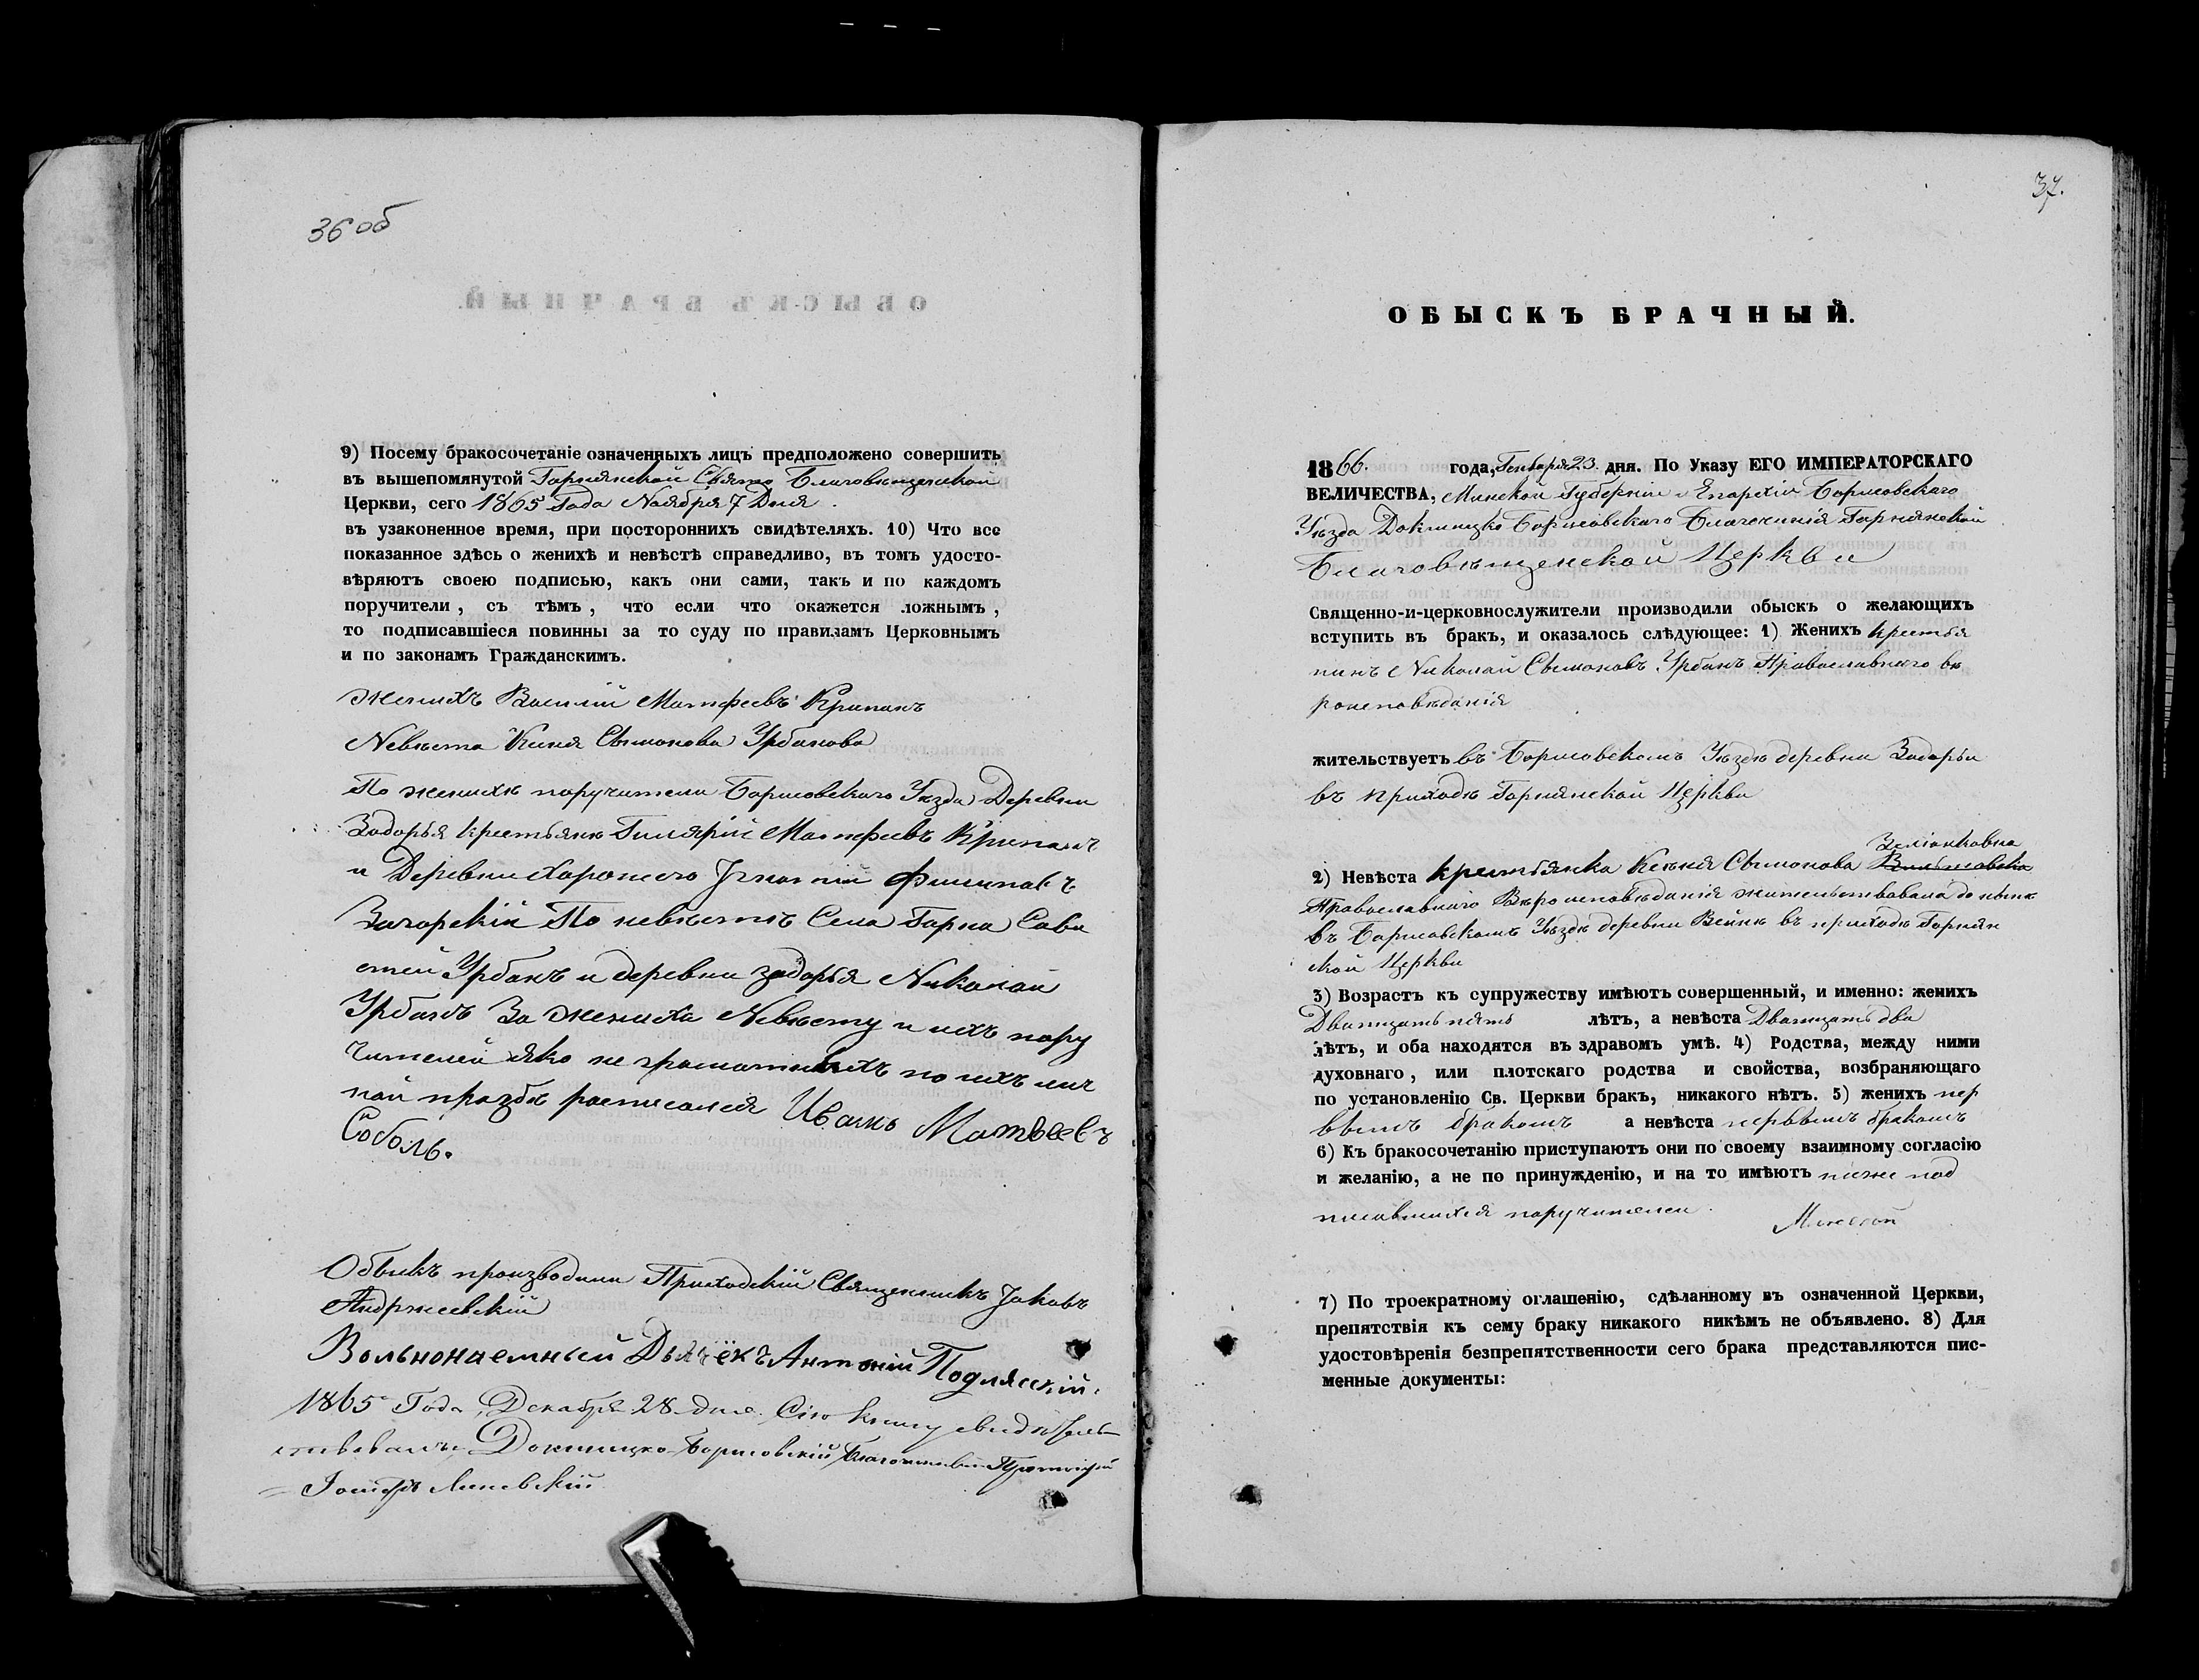 36 об
9) Посему бракосочетаніе означенныхъ лицъ предположено совершить
въ вышепомянутой Горнянской Свято Благовѣщенской
Церкви, сего 1865 Года Ноября 7 Дня.
въ узаконенное время, при постороннихъ свидѣтеляхъ. 10) Что все
показанное здѣсь о женихѣ и невѣстѣ справедливо, въ томъ удосто-
вѣряютъ своею подписью, какъ они сами, такъ и по каждомъ
поручители, съ тѣмъ, что если что окажется ложнымъ,
то подписавшіеся повинны за то суду по правиламъ Церковнымъ
и по законамъ Гражданскимъ.
женихъ Василій Матфеевъ
Невѣста Сымонова Урбанова
По женихѣ поручители Борисовскаго Уѣзда Деревни
Задорья крестьяне Гилярій Матфеевъ
и Деревни Хорошого Игнатій Филиповъ
Загорскій По невѣстѣ Села Горна Сава
стей Урбанъ и деревни задорья Николай
Урбанъ За жениха Невѣсту и ихъ пору
чителей яко не грамотныхъ по ихъ лич
ной прозбѣ росписался Иванъ Матвеевъ
Соболь.
Обыскъ производили Приходскій Священникъ Іаковъ
Андржеевскій
Вольнонаемный Дьячёкъ Антоній Подляскій.
1865 Года, Декабря 28 дня. Сію книгу свидѣтель
ствовалъ Докшицко-Борисовскій Благочинный
Іосифъ
37.
ОБЫСКЪ БРАЧНЫЙ.
1866. года, Генваря 23. дня. По Указу ЕГО ИМПЕРАТОРСКАГО
ВЕЛИЧЕСТВА, Минской Губерніи и Епархіи Борисовскаго
Уѣзда Докшицко Борисовскаго Благочинія Горнянской
Благовѣщенской Церкви
Священно-и-церковнослужители производили обыскъ о желающихъ
вступить въ бракъ, и оказалось слѣдующее: 1) Женихъ крестья
нинъ Николай Сымоновъ Урбанъ Православнаго вѣ
роисповѣданія
жительствуетъ въ Борисовскомъ Уѣздѣ деревни Задорьи
въ приходѣ Горнянской Церкви
2) Невѣста крестьянка Ксенія Сымонова
Православнаго Вѣроисповѣданія жительствовала до нынѣ
въ Борисовскомъ Уѣздѣ деревни въ приходѣ Горнян
ской Церкви
3) Возрастъ къ супружеству имѣютъ совершенный, и именно: женихъ
Дватцать пять лѣтъ, а невѣста Дватцать два
лѣтъ, и оба находятся въ здравомъ умѣ. 4) Родства, между ними
духовнаго, или плотскаго родства и свойства, возбраняющаго
по установленію Св. Церкви бракъ, никакого нѣтъ. 5) женихъ пер
вымъ бракомъ а невѣста первымъ бракомъ
6) Къ бракосочетанію приступаютъ они по своему взаимному согласію
и желанію, а не по принужденію, и на то имѣютъ ниже под
писавшихся поручителей.
7) По троекратному оглашенію, сдѣланному въ означенной Церкви,
препятствія къ сему браку никакого никѣмъ не объявлено. 8) Для
удостовѣренія безпрепятственности сего брака представляются пис-
менные документы: